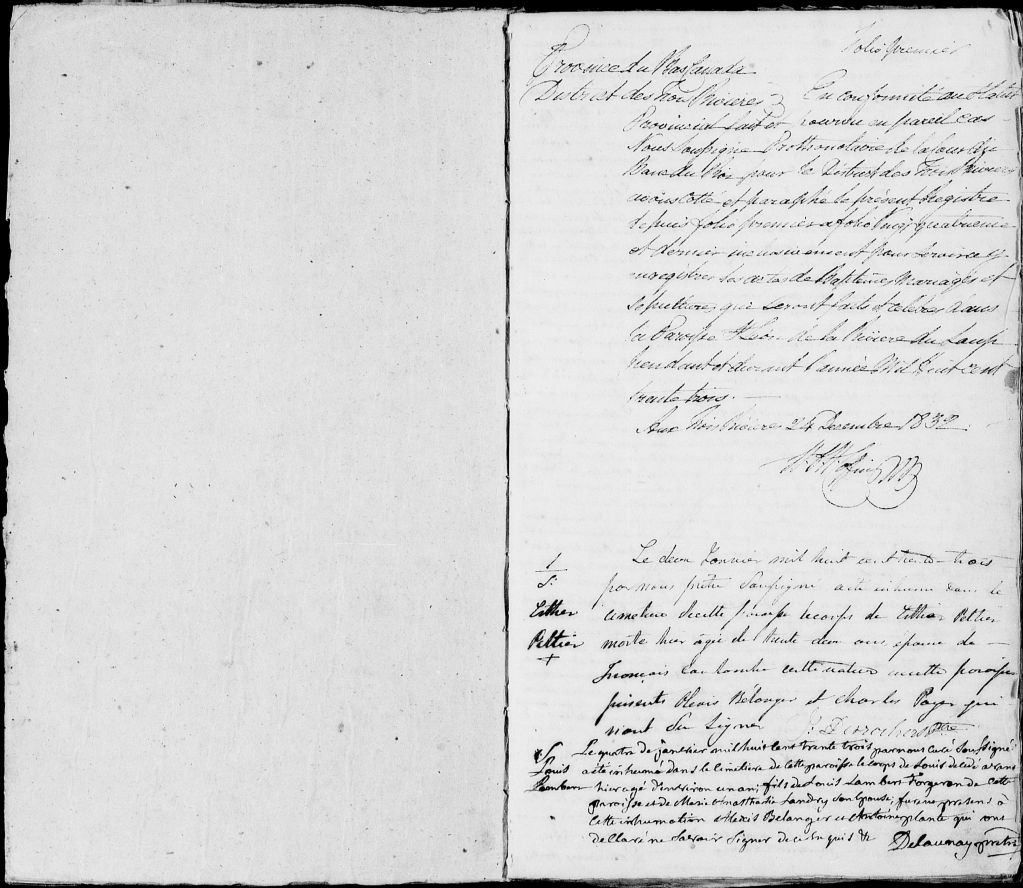 Folio Premier
Province du Bas Canada
District des Trois Rivieres En conformité au Statut
Provincial fait et pourvu en pareil cas
Nous Soussigné Prothonotaire de la Cour du
Banc du Roi pour le District des Trois Rivieres
avons cotté et paraphé le présent Registre
depuis folio premier a folio vingt quatrieme
et dernier inclusivement pour servir a
enregistrer les actes de Baptêmes, Mariages et
Sepultures, qui seront faits et célébrés dans
la Paroisse St Léon de la Riviere du Loup
pendant et durant l'année Mil huit cent
trente trois.
Aux Trois Rivieres 24 Decembre 1832.
1
S.
Esther
Peltier
+
Le deux Janvier mil huit cent trente-trois
par nous prêtre Soussigné a été inhumé dans le
cimetiere de cette paroisse le corps de Esther Peltier
morte hier agée de trente deux ans épouse de
François cultivateur de cette paroisse
présents Alexis Bélanger et Charles Payer qui
n'ont su signer
S.
Louis
Lambert
Le quatre de janvier mil huit cent trante trois par nous curé Soussigné
a été inhumé dans le cimetiere de cette paroisse le corps de Louis décédé
hier agé d'environ un an, fils de Louis Lambert Forgeron de cette
paroisse et de Marie Landry son epouse; furent presens à
cette inhumation Alexis Belanger et Antoine plante qui ont
dellaré ne Savoir Signer de ce enquis &c Delaunay prtre